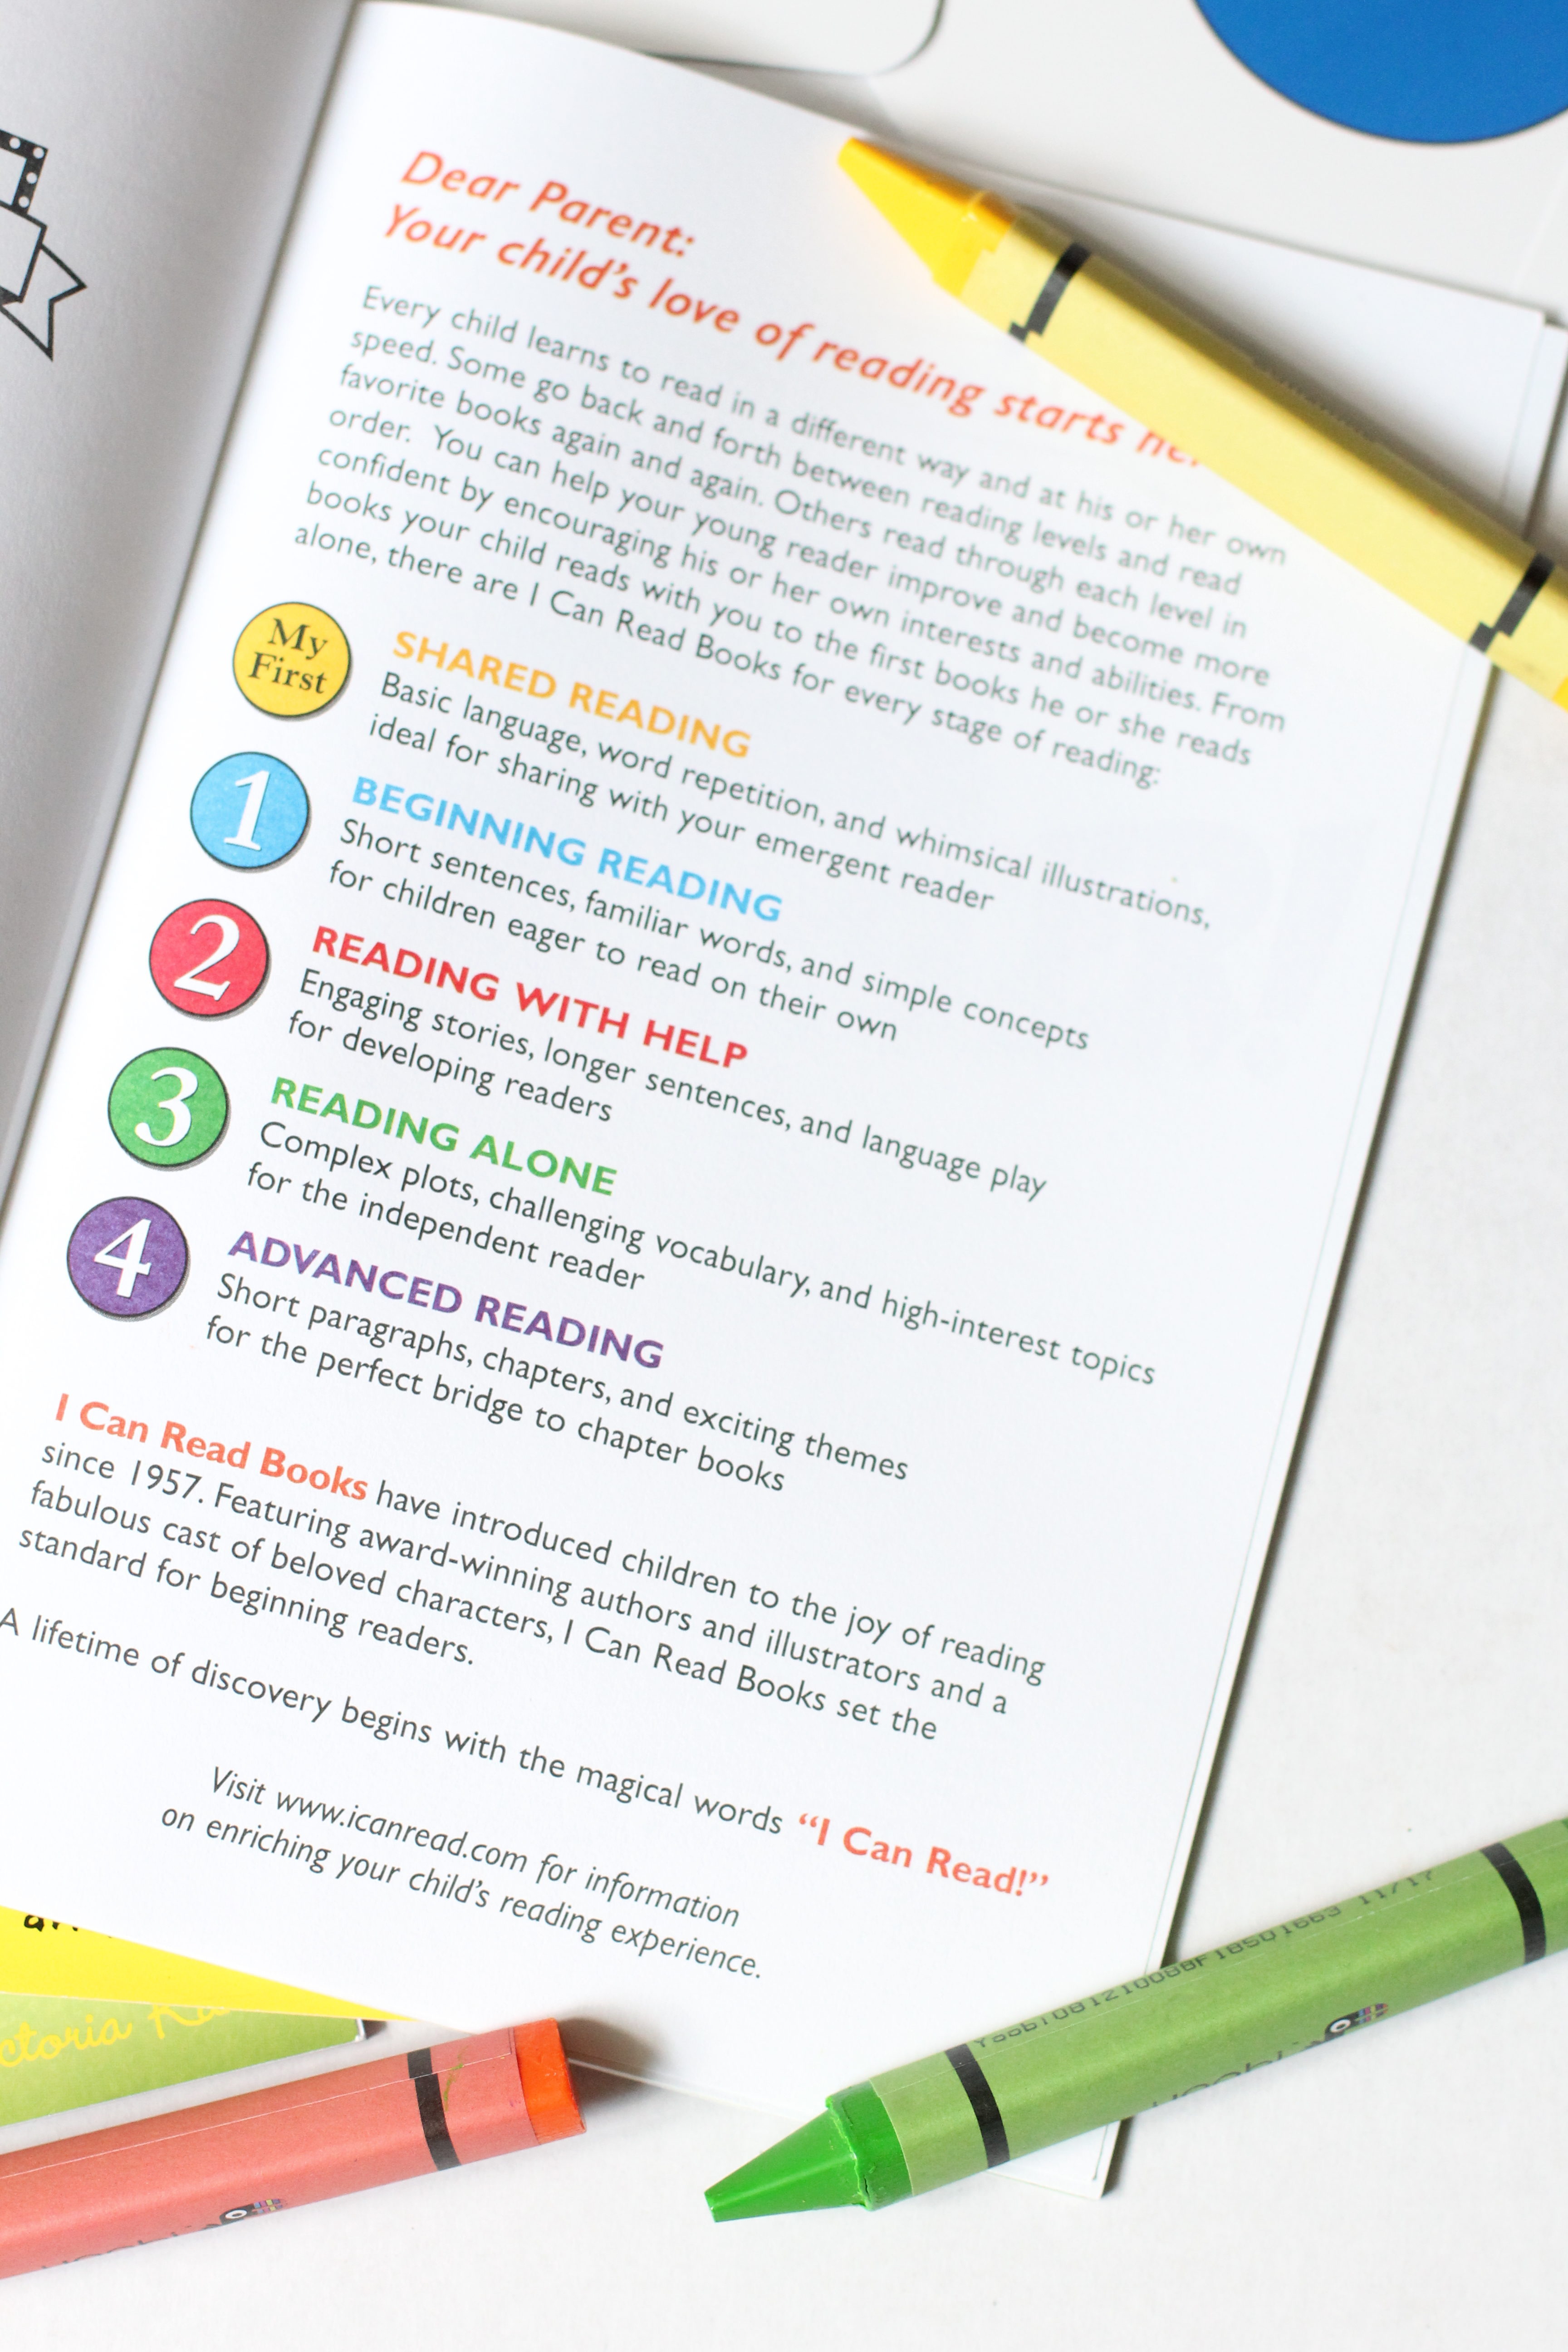 Dear Parent:
Your child's love of reading starts
Every child learns to read in a different way and at his or her own
speed. Some go back and forth between reading levels and read
favorite books again and again. Others read through each level in
order. You can help your young reader improve and become more
confident by encouraging his or her own interests and abilities. From
books your child reads with you to the first books he or she reads
alone, there are I Can Read Books for every stage of reading:
My
First
SHARED READING
Basic language, word repetition, and whimsical illustrations,
ideal for sharing with your emergent reader
1
BEGINNING READING
Short sentences, familiar words, and simple concepts
for children eager to read on their own
2
READING WITH HELP
Engaging stories, longer sentences, and language play
for developing readers
3
READING ALONE
Complex plots, challenging vocabulary, and high-interest topics
for the independent reader
4
ADVANCED READING
Short paragraphs, chapters, and exciting themes
for the perfect bridge to chapter books
I Can Read Books have introduced children to the joy of reading
since 1957. Featuring award-winning authors and illustrators and a
fabulous cast of beloved characters, I Can Read Books set the
standard for beginning readers.
A lifetime of discovery begins with the magical words "I Can Read!"
Visit www.icanread.com for information
on enriching your child's reading experience.
11/17